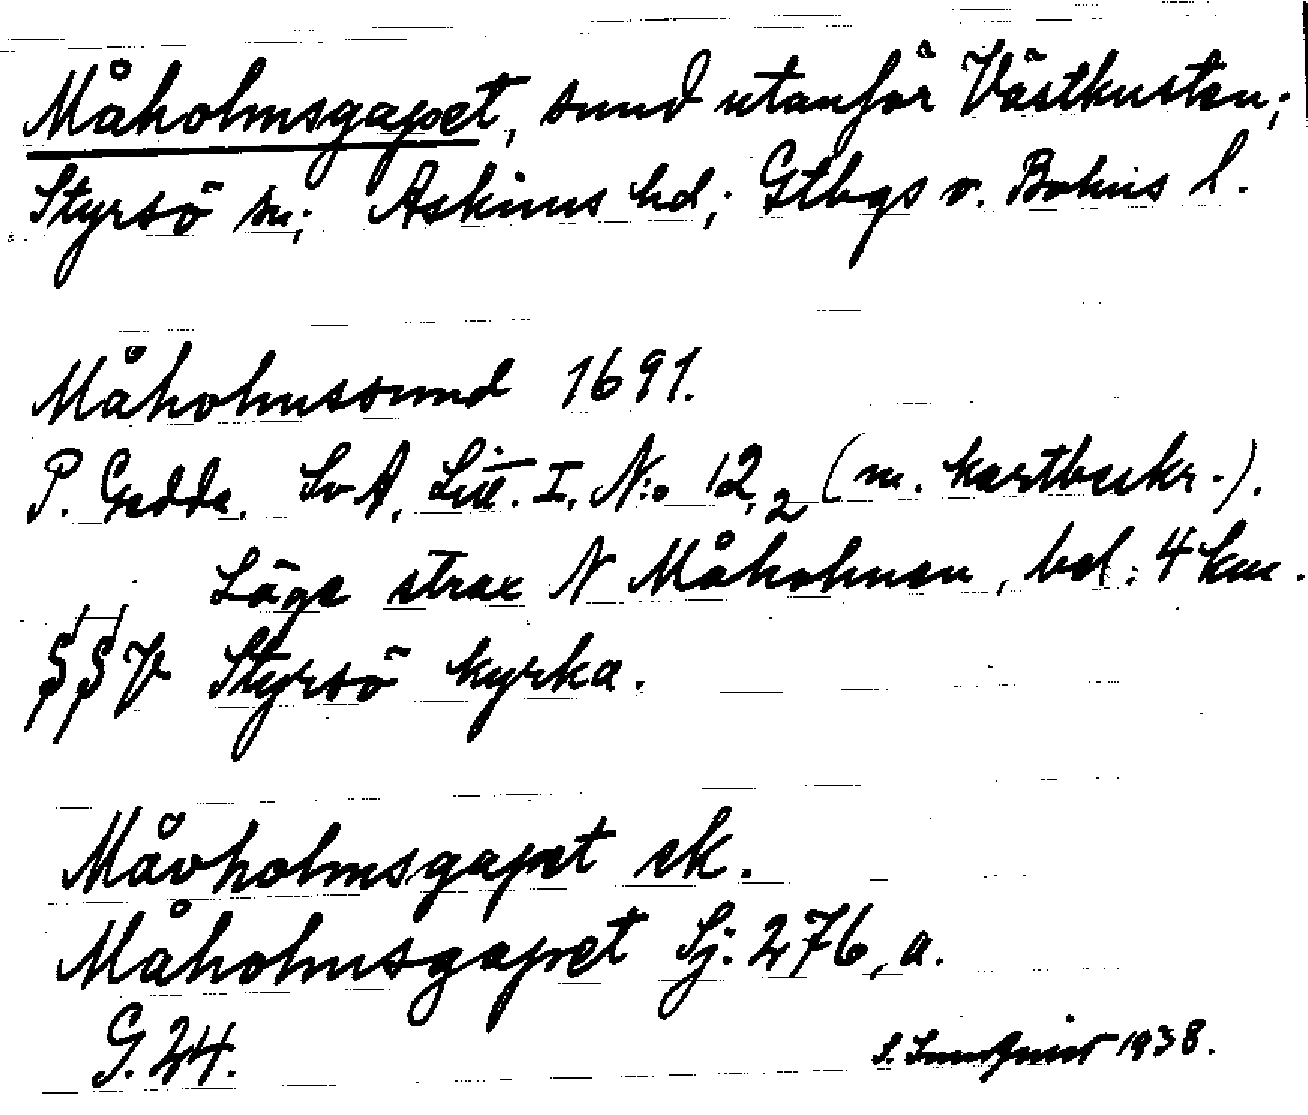 Måholmsgapet, sund utanför Västkusten;
Styrsö sn; Askims hd; Gtbgs o. Bohus l.
Måholmssund 1691.
P. Gedda. SvA. Litt. I. N:o 12,2 (m. kartbeskr.).
Läge strax N Måholmen, bel. 4 km.
§§ V Styrsö kyrka.
Måvholmsgapet ek.
Måholmsgapet Sj. 276, a.
G. 24.
1938.